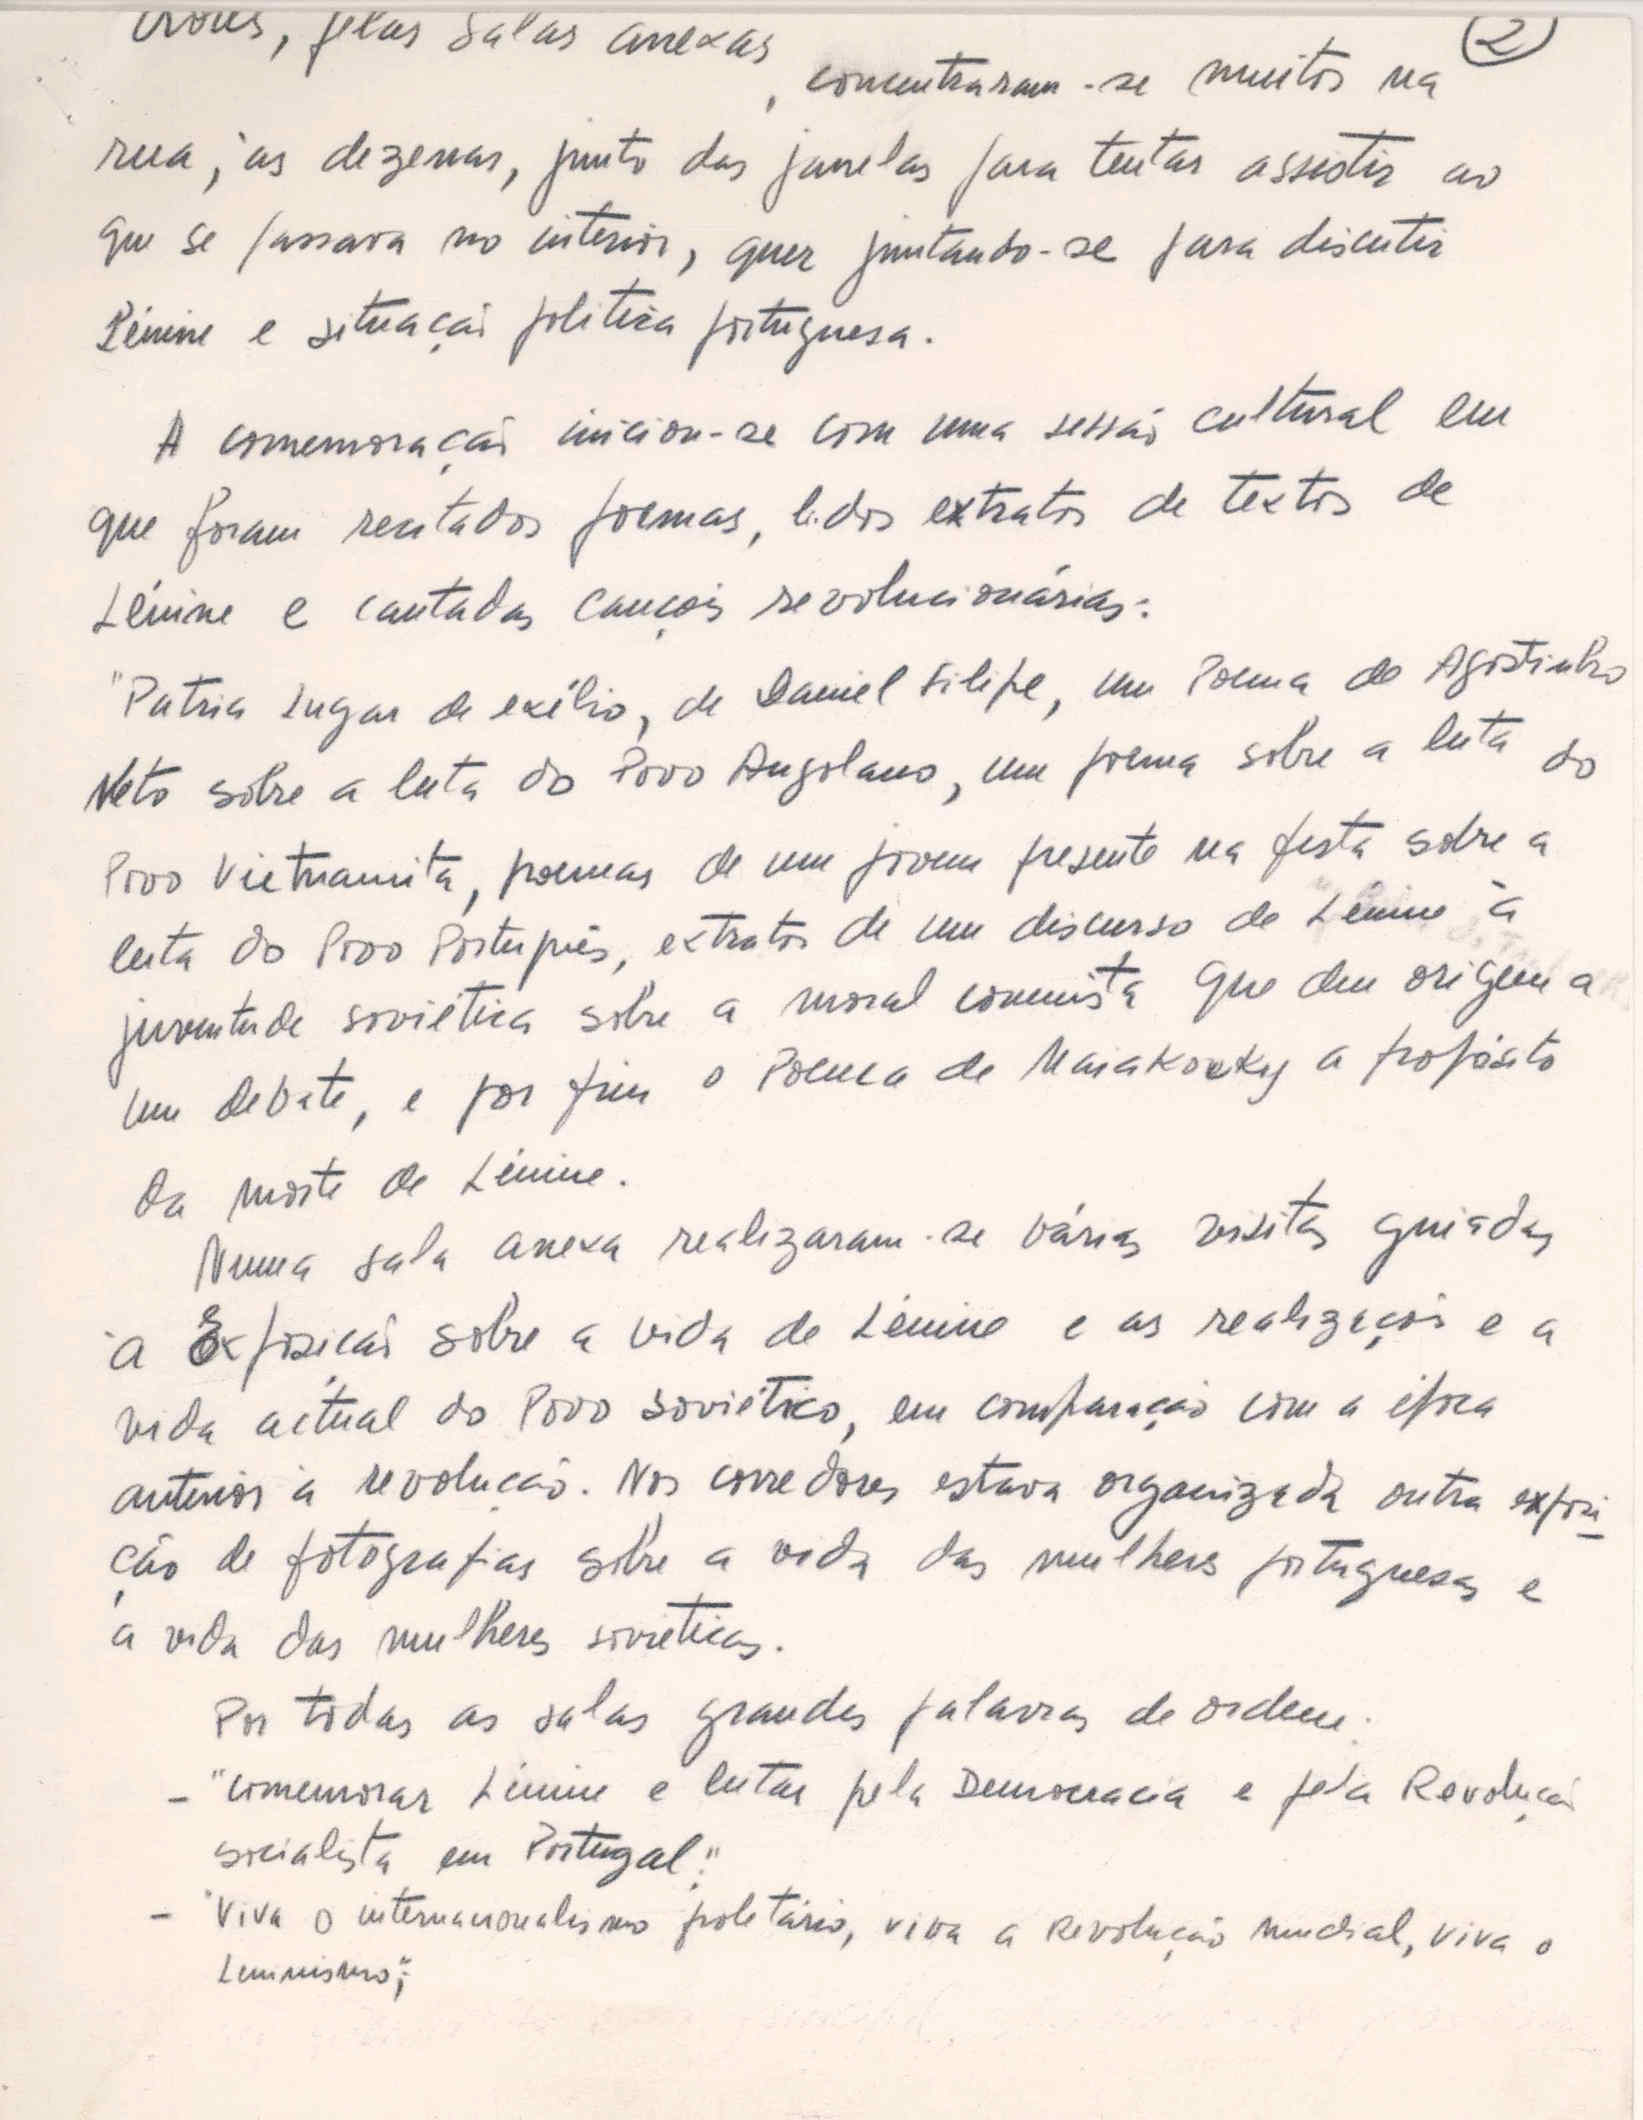 , pelas salas anexas
2
, concentraram-se muitos na
rua, às dezenas, junto das janelas para tentar assistir ao
que se passava no interior, quer juntando-se para discutir
Lénine e situação politica portuguesa.
A comemoração iniciou-se com uma sessão cultural em
que foram recitados poemas, lidos extratos de textos de
Lénine e cantadas canções revolucionárias:
"Patria Lugar de exélio, de Daniel Filipe, um Poema de Agostinho
Neto sobre a luta do Povo Angolano, um poema sobre a luta do
Povo Vietnamita, poemas de um jovem presente na festa sobre a
luta do Povo Português, extratos de um discurso de Lénine à
juventude soviética sobre a moral comunista que deu origem a
um debate, e por fim o Poema de Maiakovsky a propósito
da morte de Lénine.
Numa sala anexa realizaram-se várias visitas guiadas
à Exposição sobre a vida de Lénine e as realizações e a
vida actual do Povo Soviético, em comparação com a época
anterior à revolução. Nos corredores estava organizada outra exposi-
ção de fotografias sobre a vida das mulheres portuguesas e
a vida das mulheres soviéticas.
Por todas as salas grandes palavras de ordem:
- "Comemorar Lénine e lutar pela Democracia e pela Revolução
socialista em Portugal";
- "Viva o internacionalismo poletário, viva a Revolução Mundial, viva o
Leninismo";